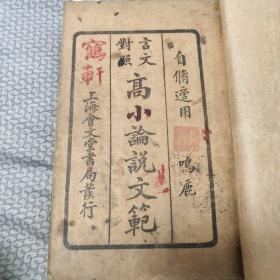 自脩適用
鳴鹿
言文
對照
高小論說文範
寫軒
上海會文堂書局發行